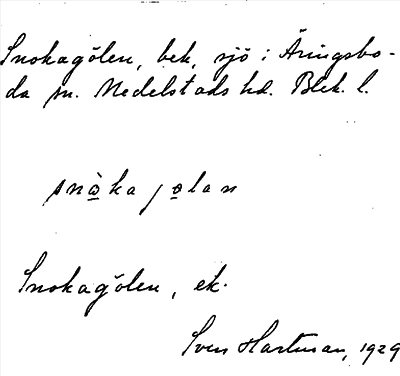 Snokagölen, bek, sjö i Äringsbo-
da sn. Medelstads hd. Blek. l.
snò̲ka jo̲lan
Snokagölen, ek.
Sven Hartman, 1929